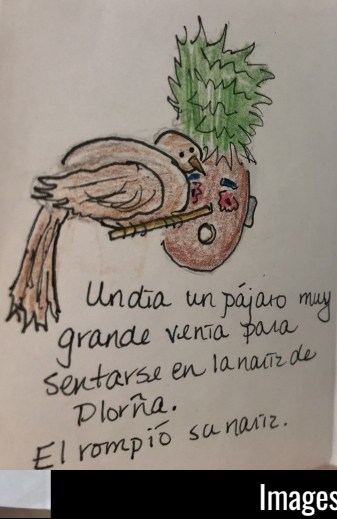 Un dia un pájaro muy
grande venia para
sentarse en la nariz de
Dlorña.
El rompió su nariz.
Images